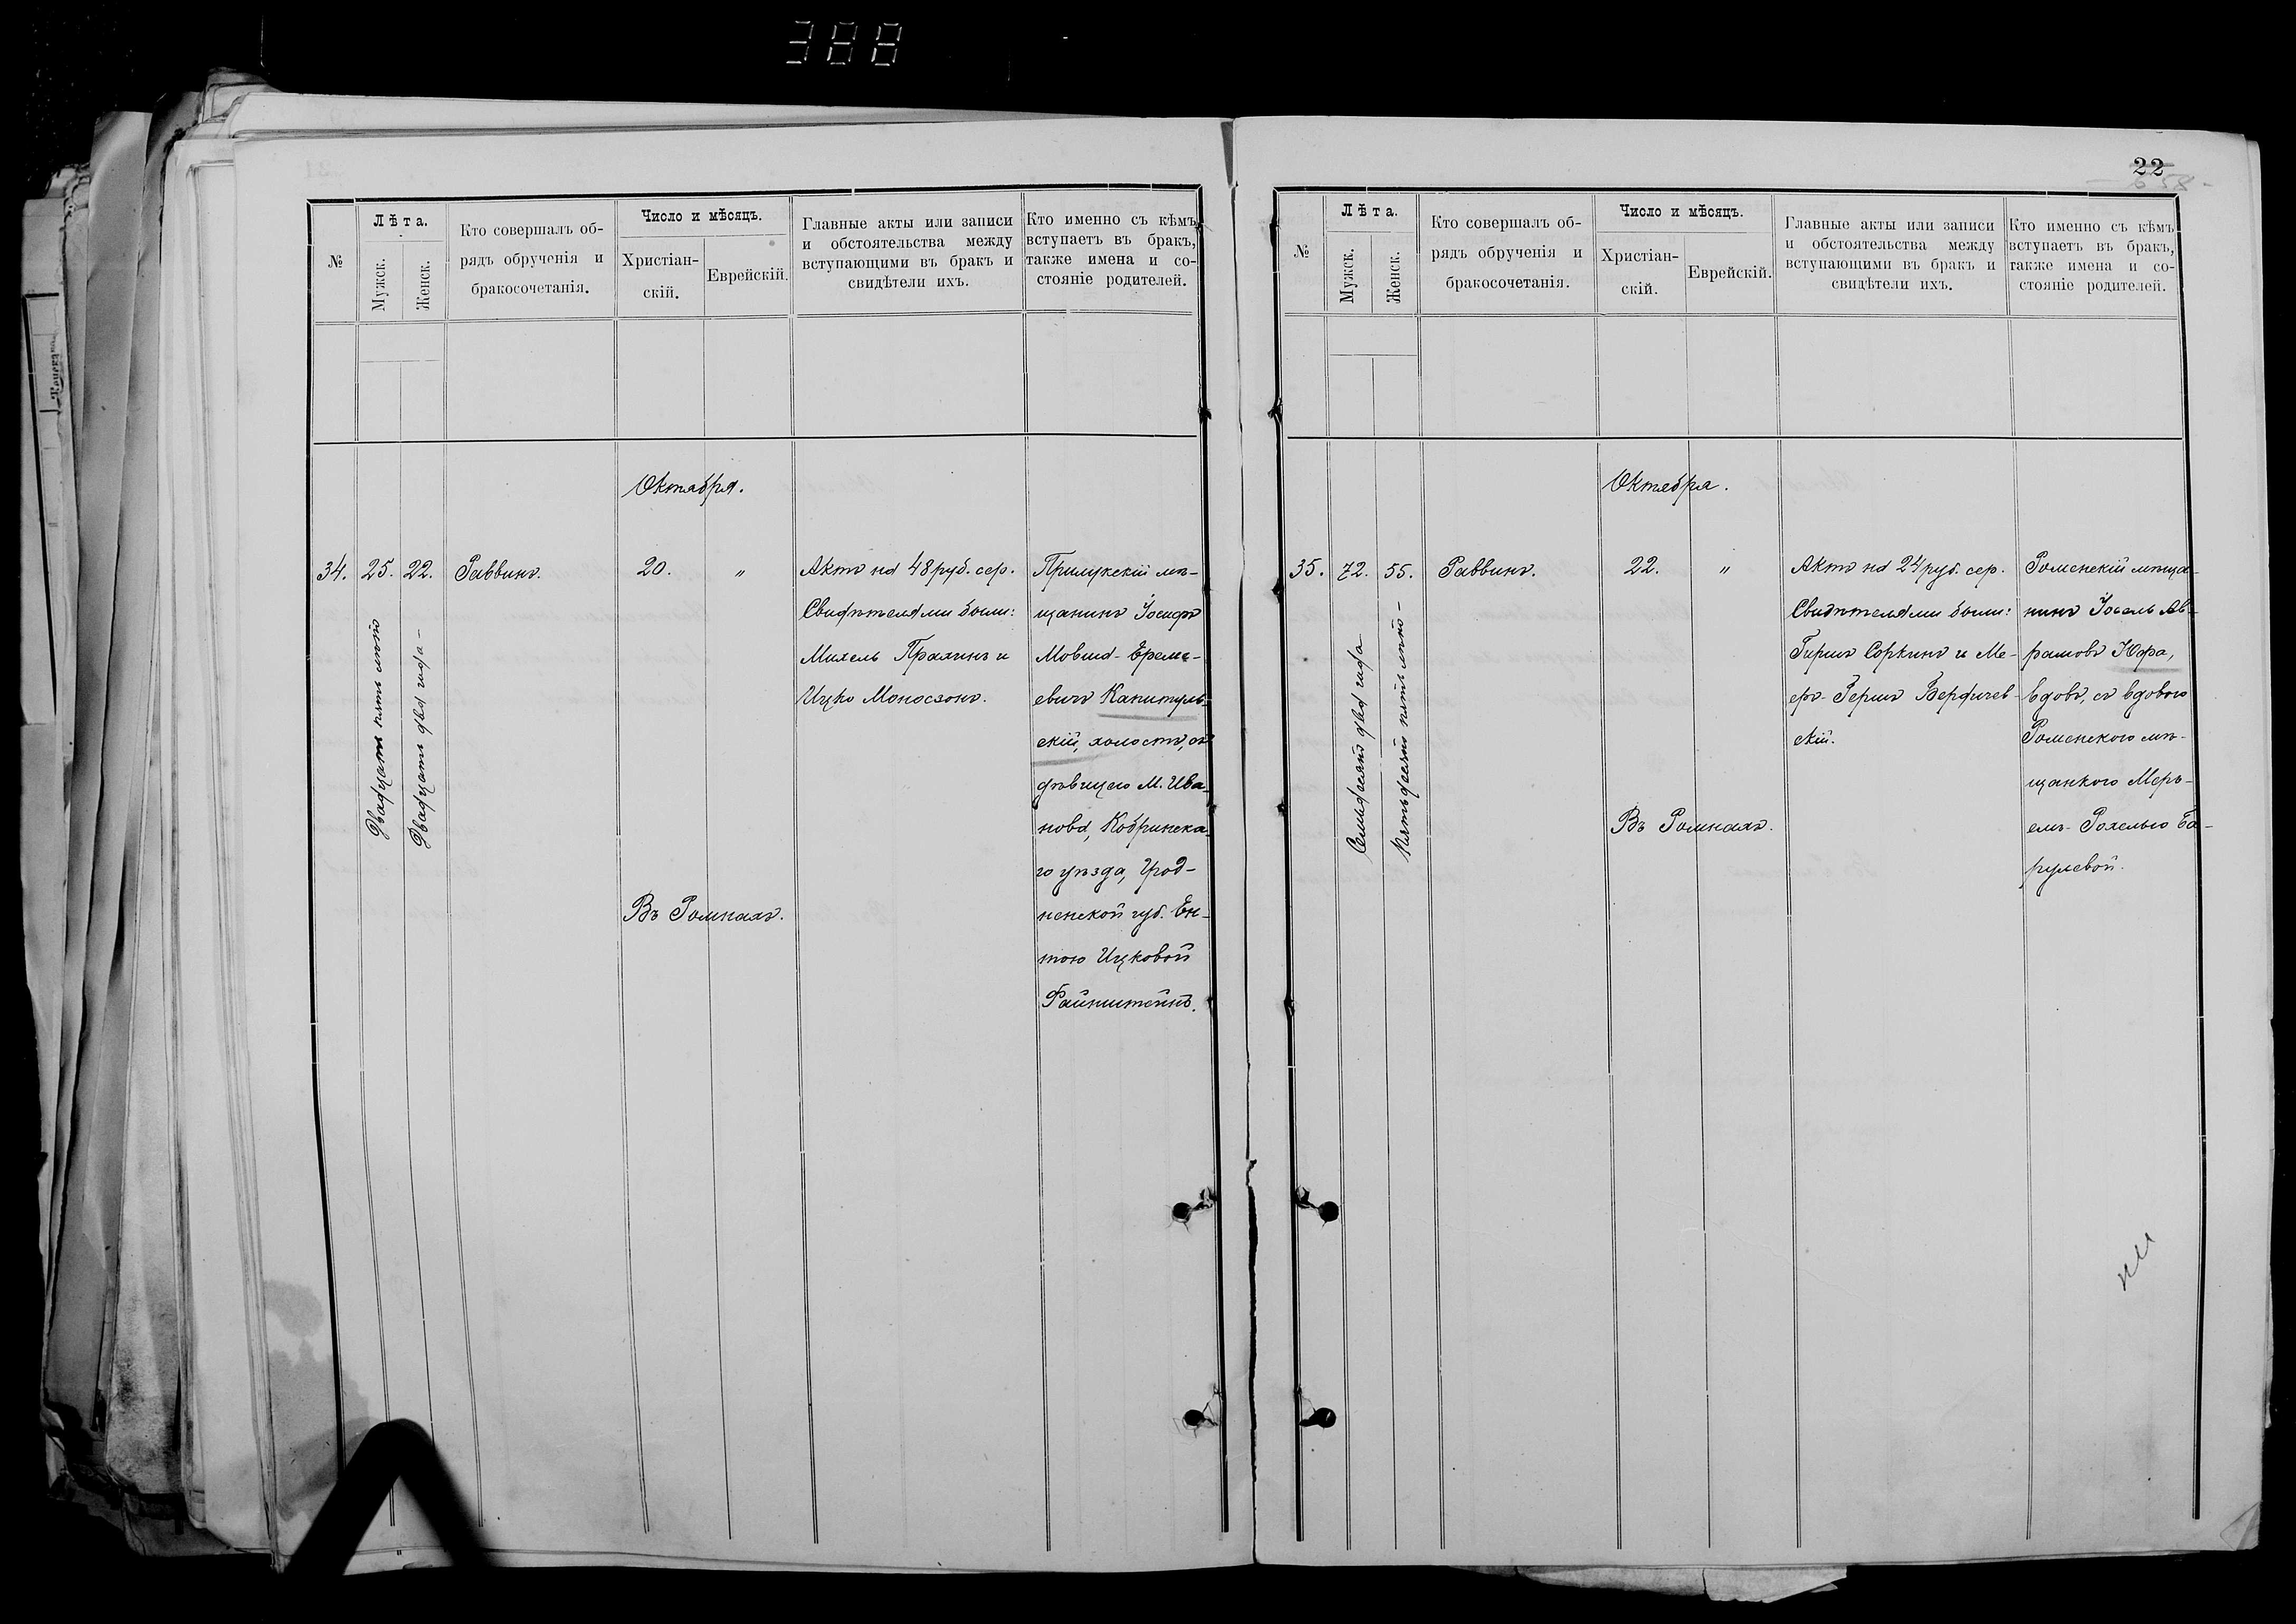 388
№
Лѣта.
Мужск.
Женск.
Кто совершалъ об-
рядъ обрученія и
бракосочетанія.
Число и мѣсяцъ.
Христіан-
скій.
Еврейскій.
Главные акты или записи
и обстоятельства между
вступающими въ бракъ и
свидѣтели ихъ.
Кто именно съ кѣмъ
вступаетъ въ бракъ,
также имена и со-
стояніе родителей.
Октября.
34.
25.
Двадцать пять лѣтъ
22.
Двадцать два года –
Раввинъ.
20.
"
Въ Ромнахъ.
Актъ на 48 руб. сер.
Свидѣтелями были:
Михель Прахинъ и
Ицко Моносзонъ.
Прилукскій мѣ-
щанинъ Іосифъ
Мовша-Ереме-
евичъ Капитуль-
скій, холостъ, съ
дѣвицею М. Ива-
нова, Кобринска-
го уѣзда, Грод-
ненской губ. Ен-
тою Ицковой
Файнштейнъ.
22
658-
№
Лѣта.
Мужск.
Женск.
Кто совершалъ об-
рядъ обрученія и
бракосочетанія.
Число и мѣсяцъ.
Христіан-
скій.
Еврейскій.
Главные акты или записи
и обстоятельства между
вступающими въ бракъ и
свидѣтели ихъ.
Кто именно съ кѣмъ
вступаетъ въ бракъ,
также имена и со-
стояніе родителей.
Октября.
35.
72.
Семьдесятъ два года
55.
Пятьдесятъ пять лѣтъ –
Раввинъ.
22.
"
Въ Ромнахъ.
Актъ на 24 руб. сер.
Свидѣтелями были:
Гиршъ Соркинъ и Ме-
еръ-Гершъ Бердичев-
скій.
Роменскій мѣща-
нинъ Іосель Ав-
рамовъ Юфа,
вдовъ, съ вдовою
Роменскою мѣ-
щанкою Меръ-
емъ-Рохелью Ба-
руховой.